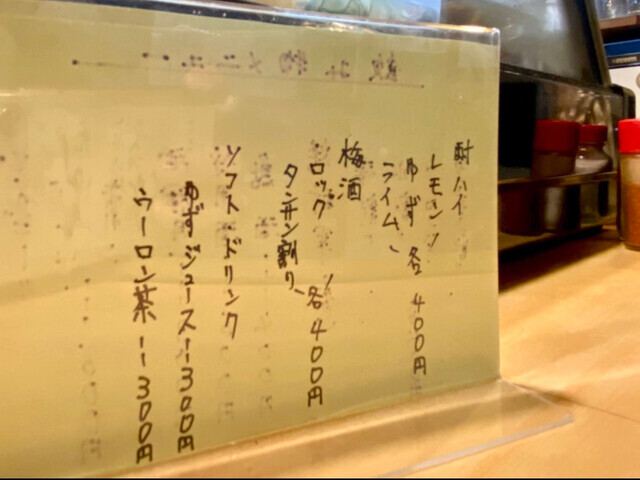 酎ハイ
レモン
ゆず 各400円
ライム
梅酒
ロック 各400円
タンサン割り
ソフト・ドリンク
ゆずジュース ー 300円
ウーロン茶 ー 300円